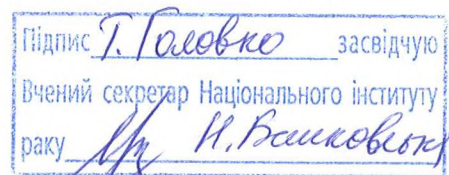 Підпис Т. Головко засвідчую
Вчений секретар Національного інституту
раку